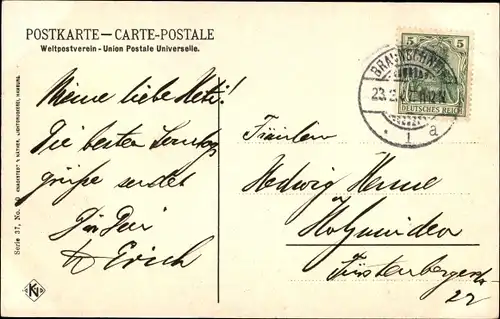 POSTKARTE – CARTE-POSTALE
Weltpostverein - Union Postale Universelle.
5 5
DEUTSCHES REICH
BRAUNSCHWEIG
23.
1 a
Meine liebe
Die besten Sonntags
grüße sendet
Dir Dein
Erich
Fräulein
Hedwig Henne
Holzminden
Fürstenbergerstr
22
Serie 37, No.
KN